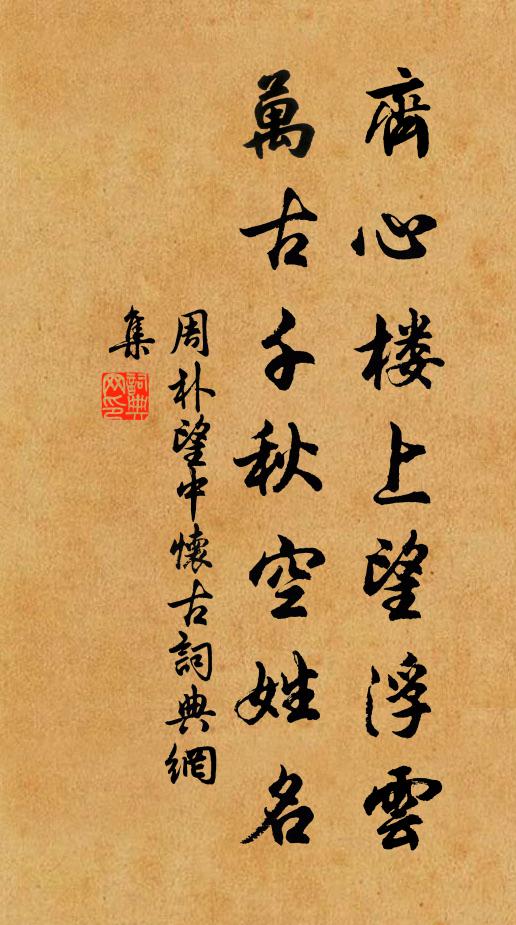 齊心楼上望浮雲
萬古千秋空姓名
周朴望中懷古詞典網
集
詞典
网印